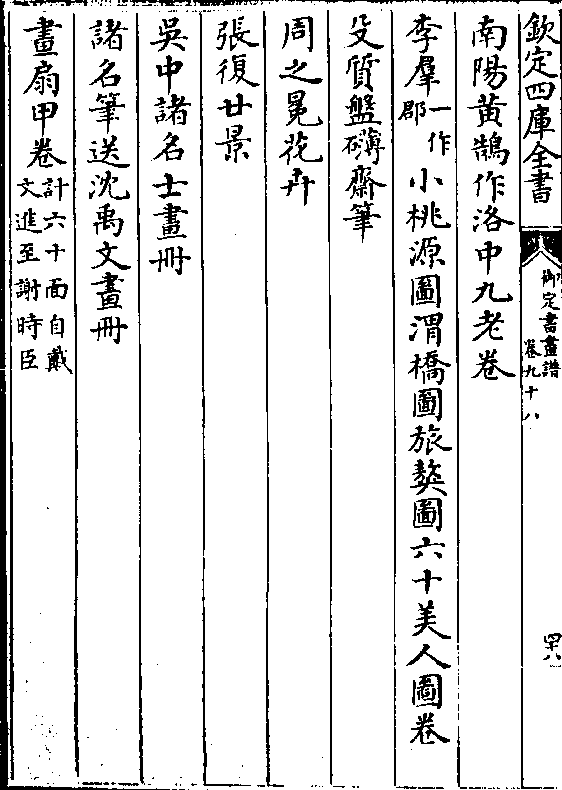 欽定四庫全書
御定書畫譜
卷九十八
四十八
南陽黃鵠作洛中九老卷
李羣一作郡小桃源圖渭橋圖旅獒圖六十美人圖卷
殳質盤礴齋筆
周之冕花卉
張復廿景
吳中諸名士畫冊
諸名筆送沈禹文畫冊
畫扇甲卷計六十面自戴文進至謝時臣